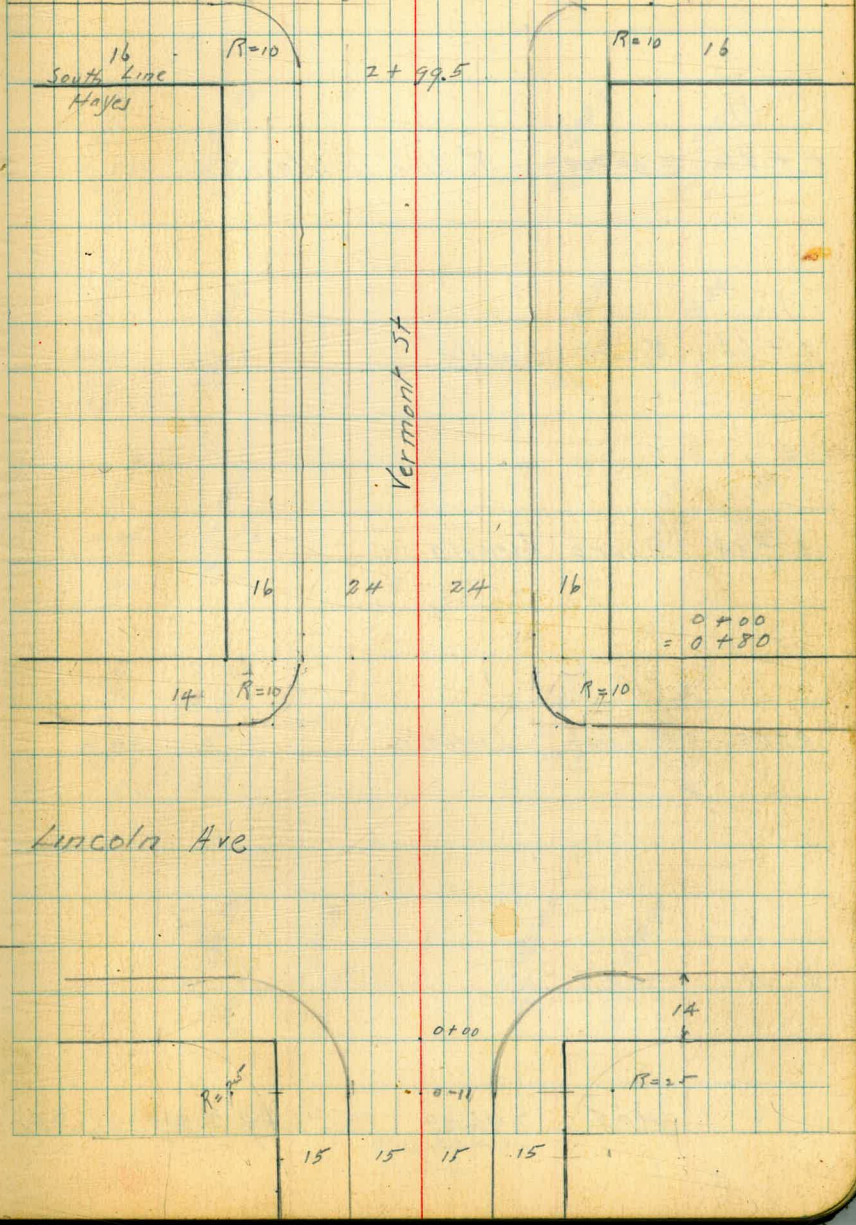 16 R=10 R=10 16
South Line
Hayes
2+99.5
Vermont St
16 24 24 16
0+00
= 0+80
14 R=10 R=10
Lincoln Ave
14
0+00
R=25 0-11 R=25
15 15 15 15